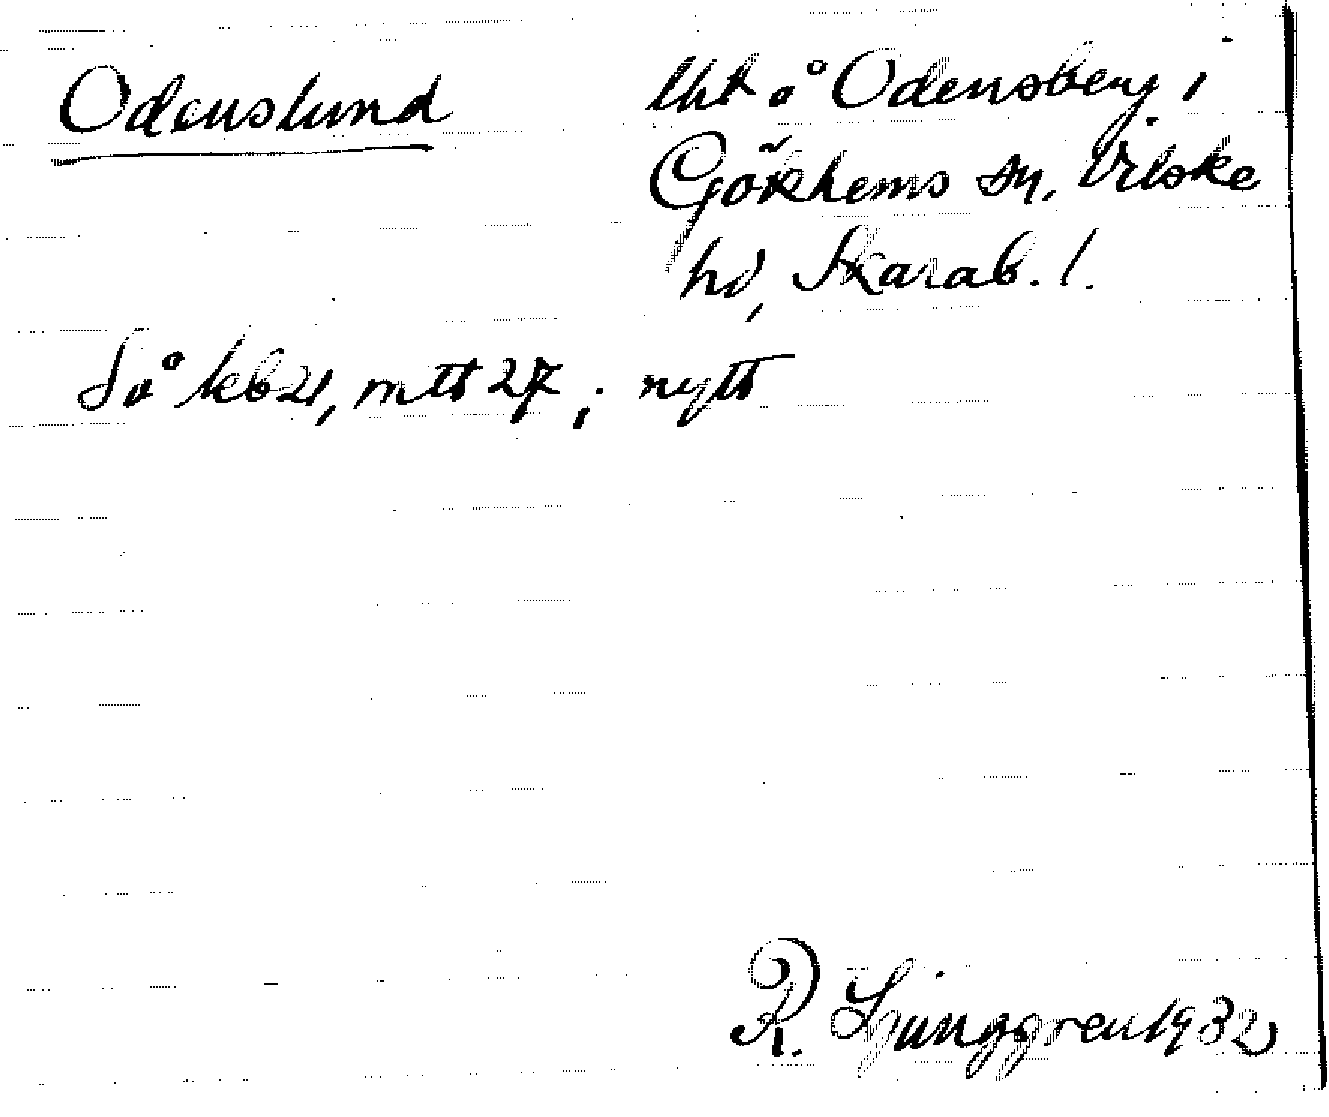 Odenslund
lht å Odensberg i
Gökhems sn, Vilske
hd, Skarab. l.
Så kb 21, mtb 27, ; nytt
R. Ljunggren 1932